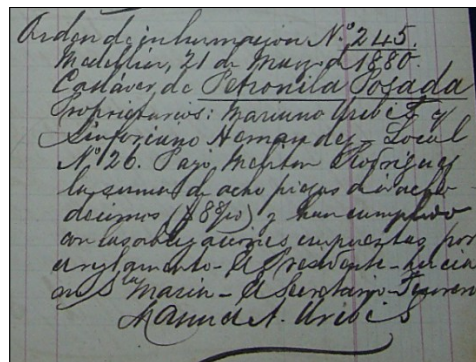 Orden de inhumacion N.° 245.
Medellin, 21 de Mayo d 1880.
Cadáver de Petronila Posada
Propietarios: Mariano Uribe F. y
Sinforiano Hernandez - Local
N° 26. Pagó Meliton Rodriguez
la suma de ocho pesos diez i ocho
decimos ($ 8 8/10) y han cumplido
con las obligaciones impuestas por
el reglamento - El Presidente -
Marin - El Secretario -
Manuel A. Uribe S